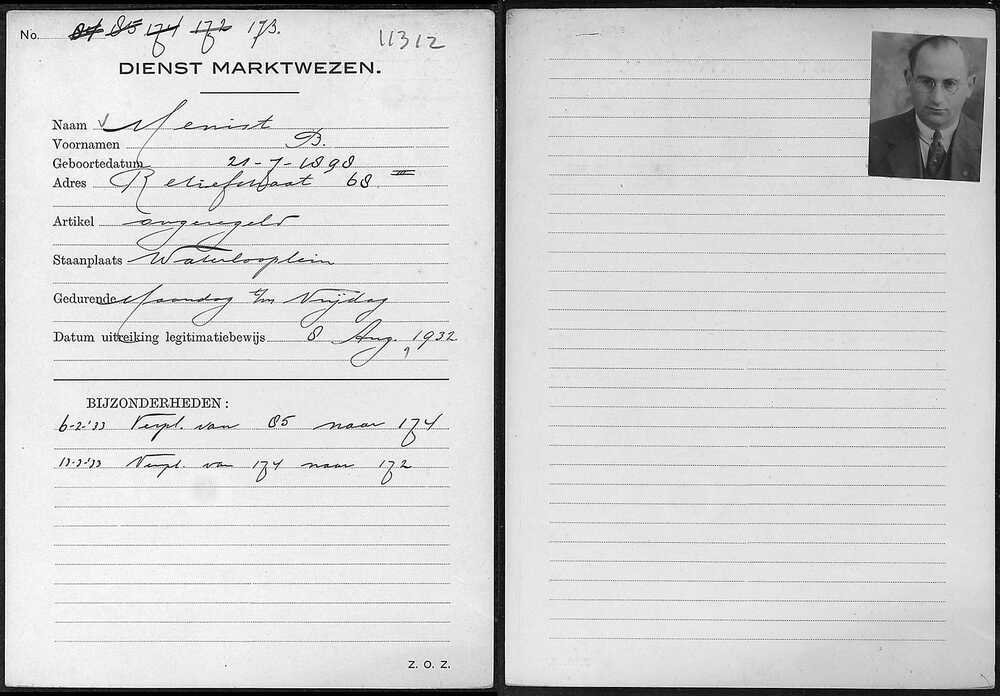 No. 84 85 174 172 173.
11312
DIENST MARKTWEZEN.
Naam Menist
Voornamen B.
Geboortedatum 21-7-1898
Adres Retiefstraat 68 III
Artikel ongeregeld
Staanplaats Waterlooplein
Gedurende Maandag t/m Vrijdag
Datum uitreiking legitimatiebewijs 8 Aug. 1932
BIJZONDERHEDEN:
6-2-'33 Verpl. van 85 naar 174
13-3-'33 Verpl. van 174 naar 172
Z. O. Z.